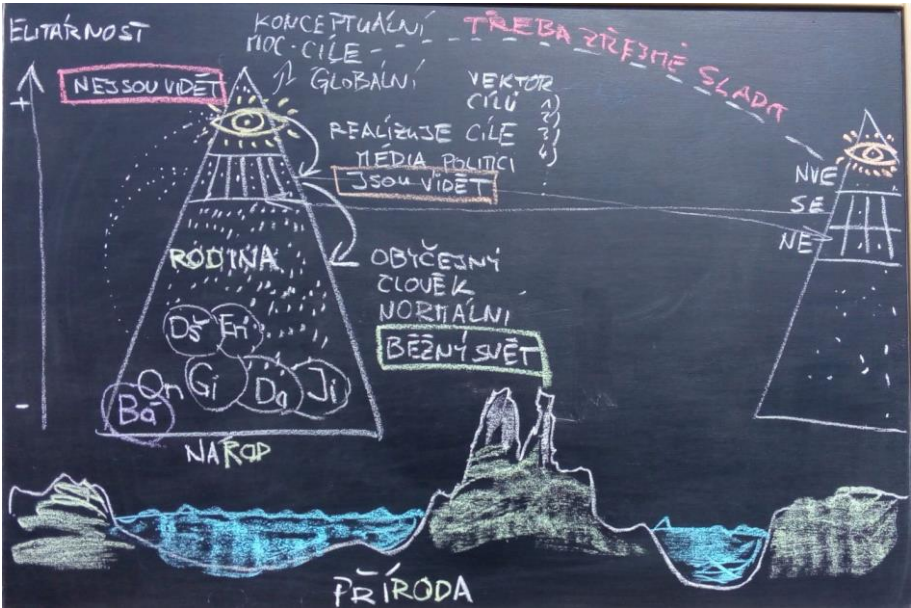 ELITÁRNOST
KONCEPTUÁLNÍ
MOC - CÍLE
GLOBÁLNÍ
TŘEBA ZŘEJMĚ SLADIT
+
NEJSOU VIDĚT
VEKTOR
CÍLŮ 1)
2)
REALIZUJE CÍLE 3)
MÉDIA POLITICI 4)
JSOU VIDĚT
NVE
SE
NE
RODINA
OBYČEJNÝ
ČLOVĚK
NORMÁLNI
BĚŽNÝ SVĚT
Dš En
On Gi Da Ji
Ba
-
NAROD
PŘÍRODA